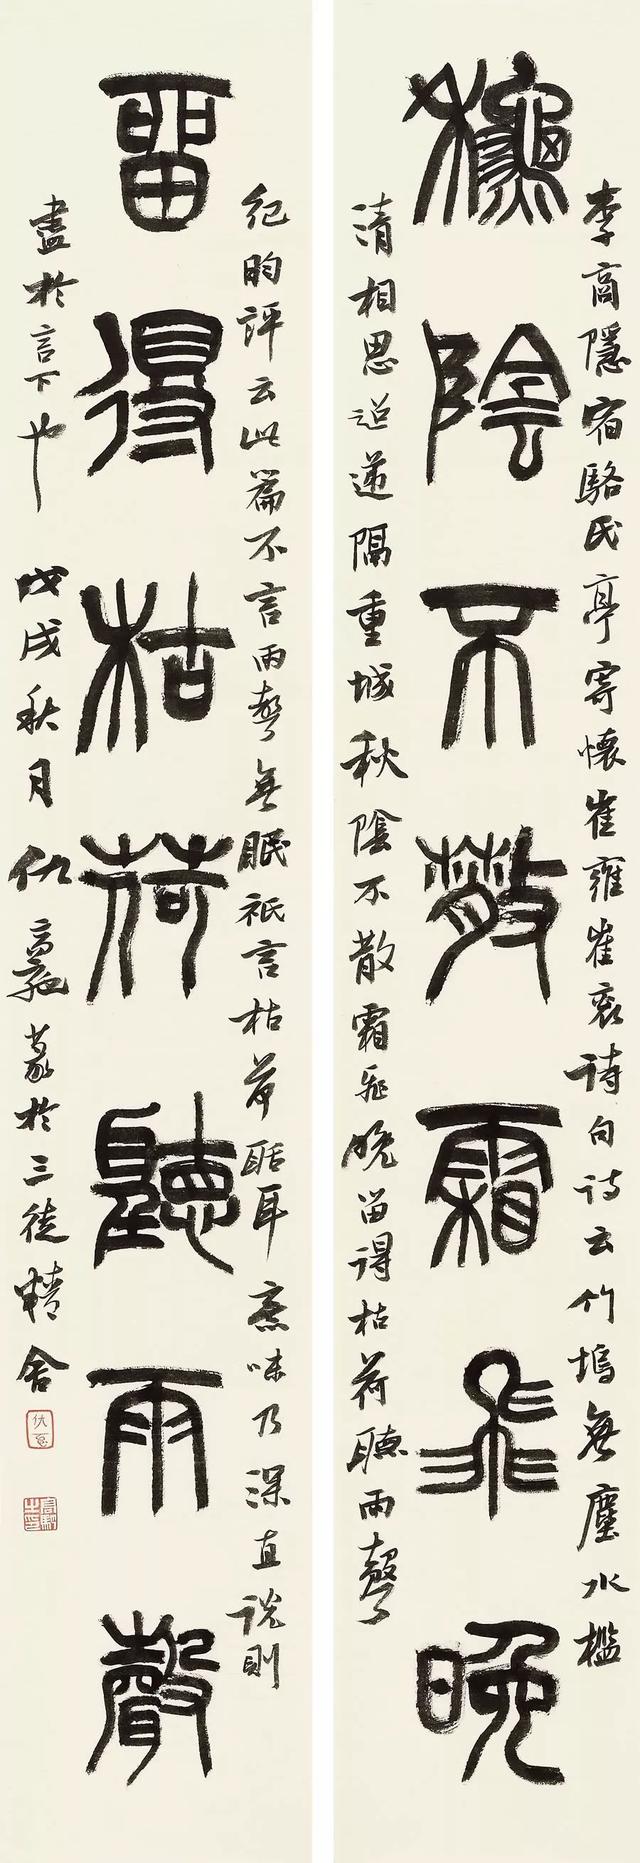 李商隱宿駱氏亭寄懷崔雍崔袞詩句詩云竹塢無塵水檻
龝陰不散霜飛晚
清相思迢遞隔重城秋陰不散霜飛晚留得枯荷聽雨聲
紀昀評云此篇不言雨聲無眠祇言枯荷聒耳意味乃深直說則
留得枯荷聽雨聲
盡於言下也 戊戌秋月仇高馳篆於三徒精舍